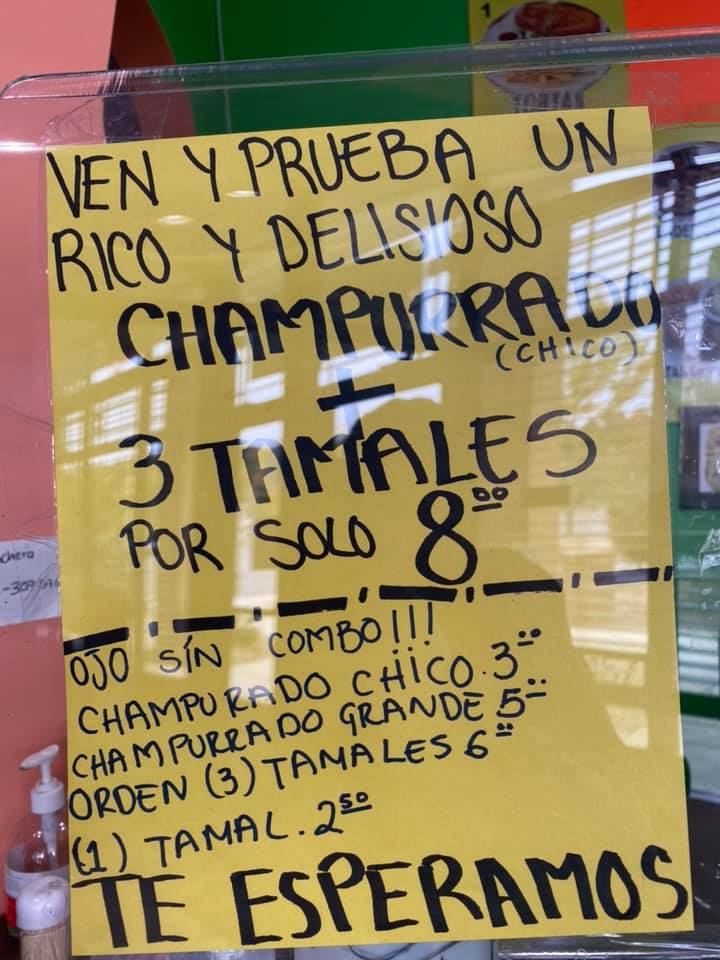 VEN Y PRUEBA UN
RICO Y DELISIOSO
CHAMPURRADO
(CHICO)
+
3 TAMALES
POR SOLO 8.00
OJO SÍN COMBO!!!
CHAMPURADO CHICO. 3
CHAMPURRADO GRANDE 5
ORDEN (3) TAMALES 6
(1) TAMAL. 2.50
TE ESPERAMOS
1
chero